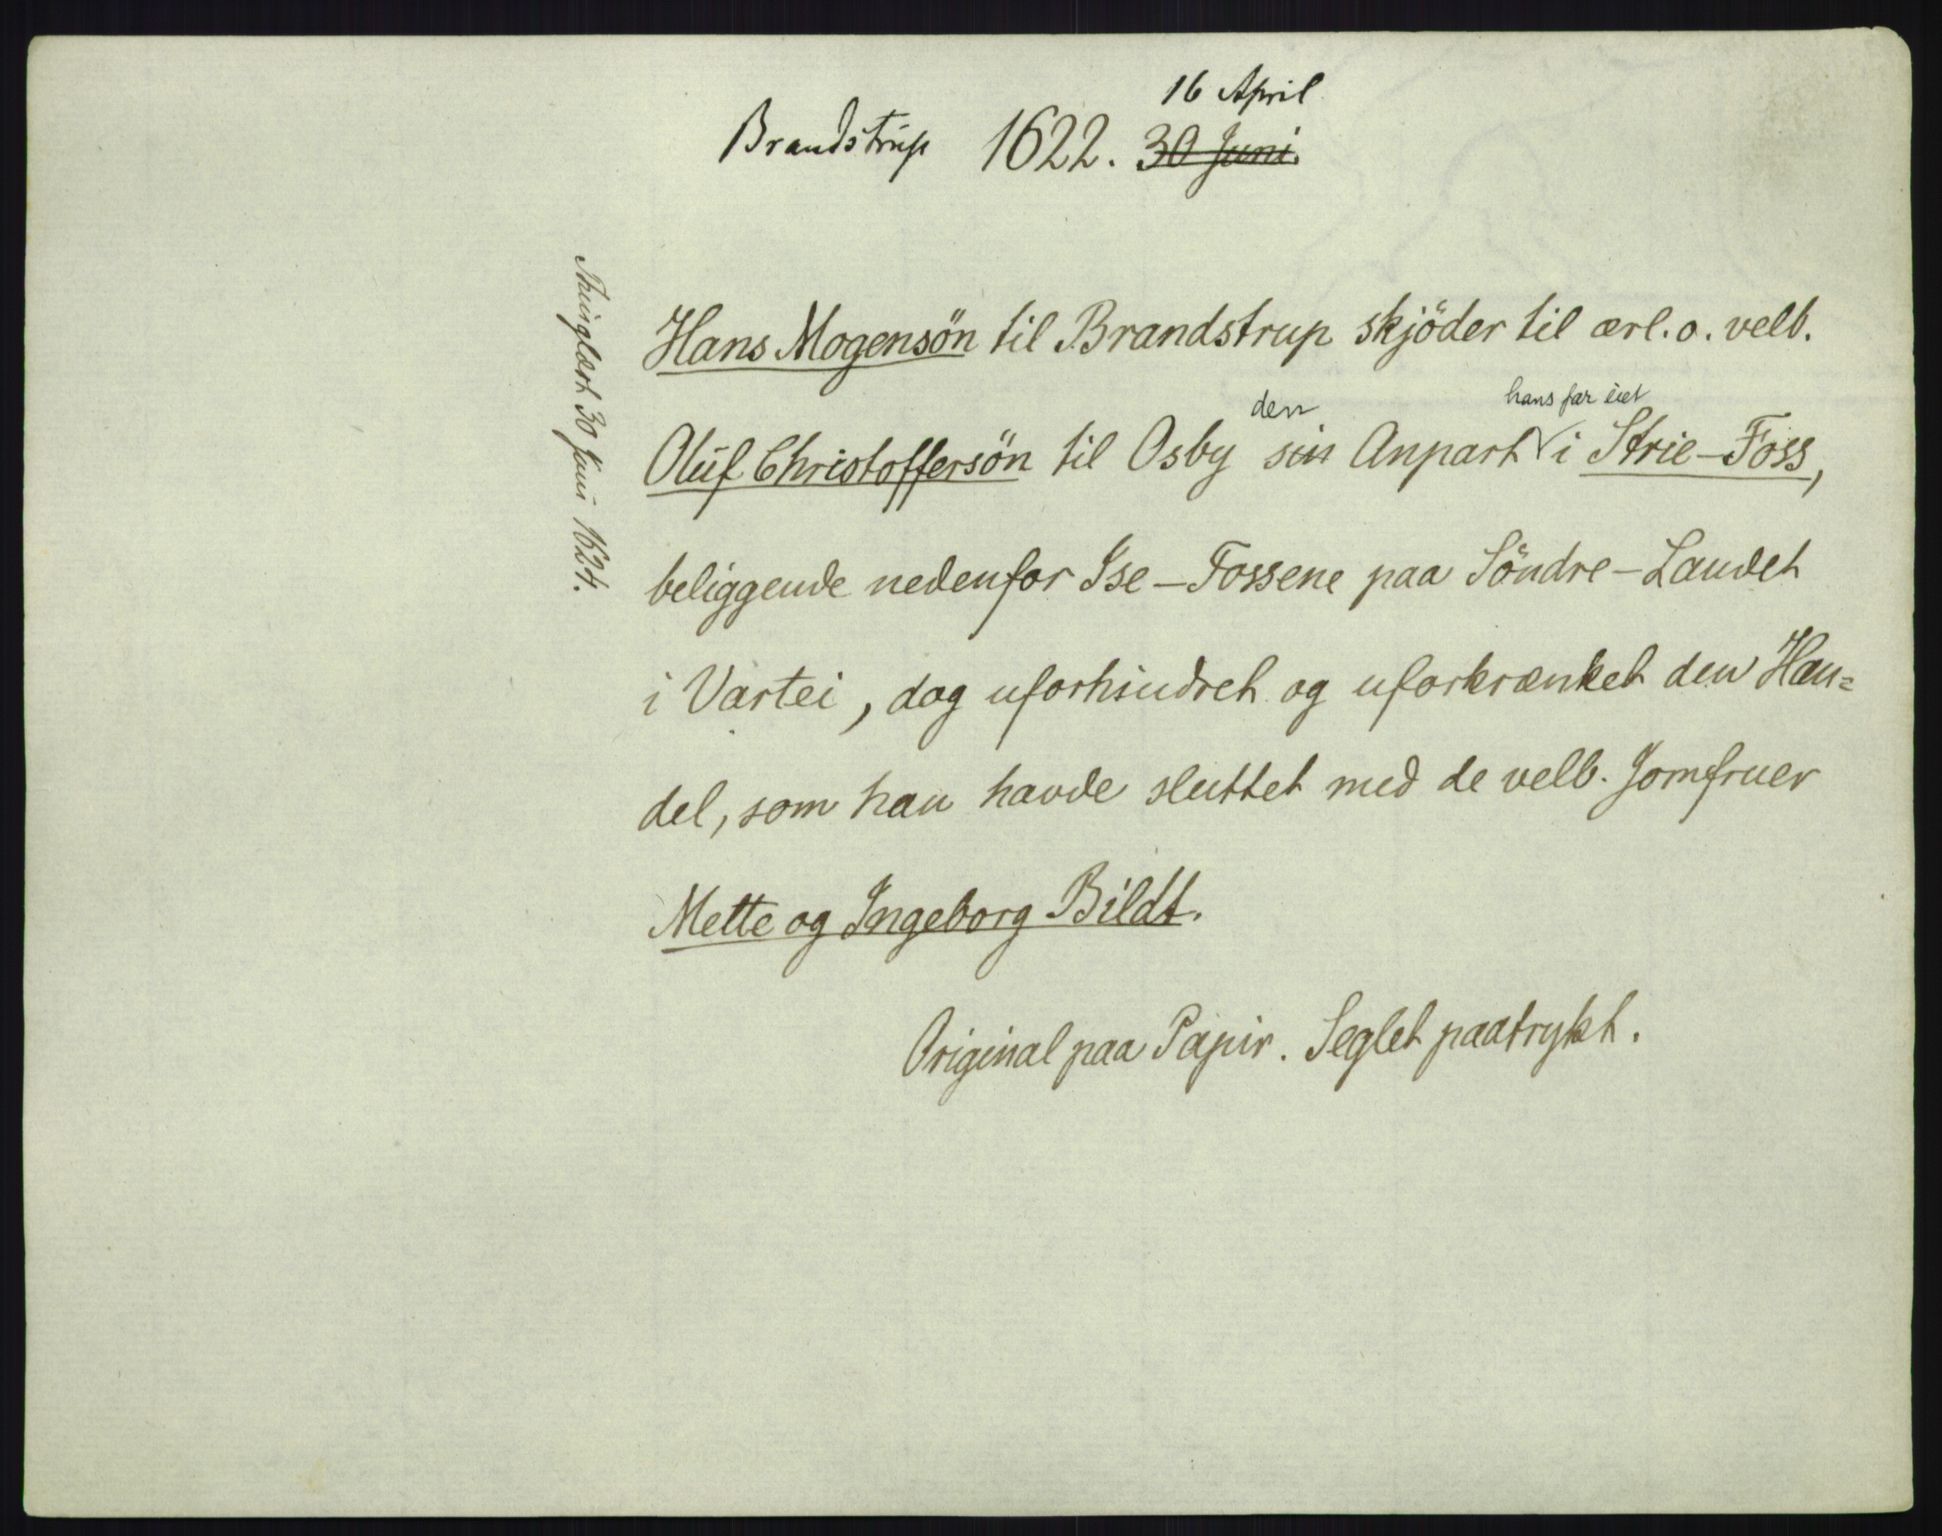 16 April
Brandstrup 1622. 30 Juni.
Thinglæst 30 Juni 1624.
Hans Mogensön til Brandstrup skjöder til ærl. o. velb.
den hans far eiet
Oluf Christoffersön til Osby sin Anpart i Strie-Foss,
beliggende nedenfor Ise-Fossene paa Söndre-Landet
i Vartei, dog uforhindret og uforkrænket den Han=
del, som han havde sluttet med de velb. Jomfruer
Mette og Ingeborg Bildt.
Original paa Papir. Seglet paatrykt.